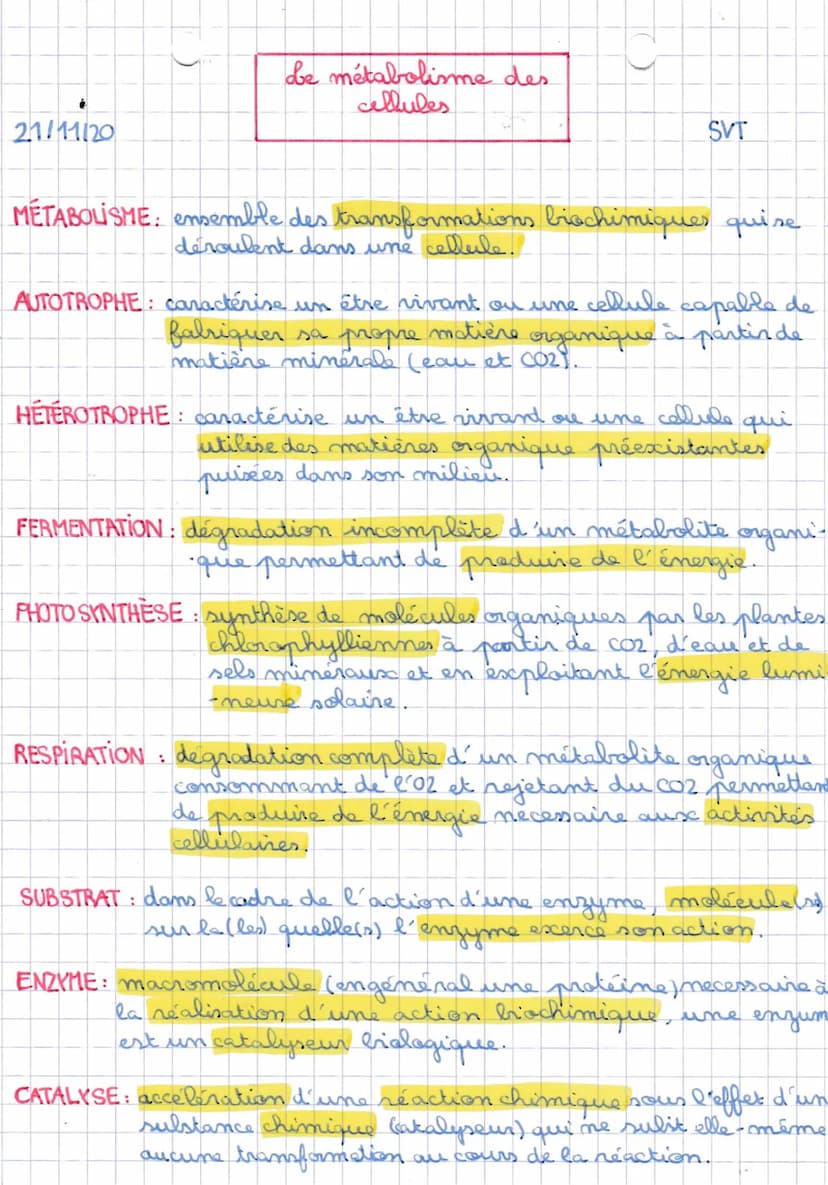 Le métabolisme des
cellules
21/11/20
SVT
MÉTABOLISME : ensemble des transformations biochimiques qui se
déroulent dans une cellule.
AUTOTROPHE : caractérise un être vivant ou une cellule capable de
fabriquer sa propre matière organique à partir de
matière minérale (eau et CO2).
HÉTÉROTROPHE : caractérise un être vivant ou une cellule qui
utilise des matières organique préexistantes
puisées dans son milieu.
FERMENTATION : dégradation incomplète d'un métabolite organi-
-que permettant de produire de l'énergie.
PHOTOSYNTHÈSE : synthèse de molécules organiques par les plantes
chlorophylliennes à partir de CO2, d'eau et de
sels minéraux et en exploitant l'énergie lumi-
-neuse solaire.
RESPIRATION : dégradation complète d'un métabolite organique
consommant de l'O2 et rejetant du CO2 permettant
de produire de l'énergie necessaire aux activités
cellulaires.
SUBSTRAT : dans le cadre de l'action d'une enzyme, molécule(s)
sur la (les) quelle(s) l'enzyme exerce son action.
ENZYME : macromolécule (en général une protéine) necessaire à
la réalisation d'une action biochimique, une enzym
est un catalyseur biologique.
CATALYSE : accélération d'une réaction chimique sous l'effet d'un
substance chimique (catalyseur) qui ne subit elle-même
aucune transformation au cours de la réaction.